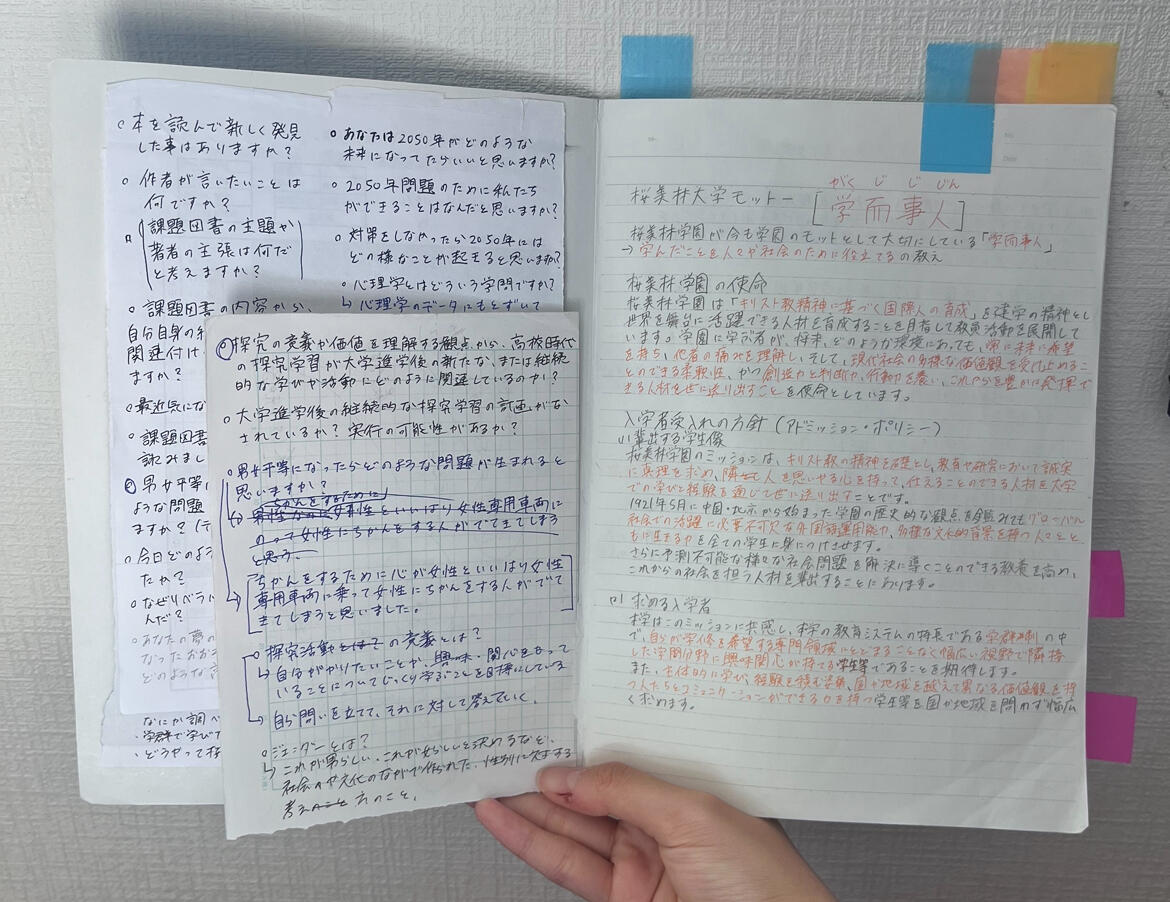 ○本を読んで新しく発見
した事はありますか?
○作者が言いたいことは
何ですか?
課題図書の主題や
著者の主張は何だ
と考えますか?
○課題図書の内容から、
自分自身の
関連付け
ますか?
○最近気にな
○課題図書
読みまし
男女平等に
ような問題
ますか?
○今日どのよう
たか?
○なぜリベラル
んだ?
○あなたの夢の
なった
どのような
なにか調べ
・学群で学びた
・どうやって
○あなたは2050年がどのような
未来になってたらいいと思いますか?
○2050年問題のために私たち
ができることはなんだと思いますか?
○対策をしなかったら2050年には
どの様なことが起きると思いますか?
○心理学とはどういう学問ですか?
↳心理学のデータにもとずいて
探究の意義や価値を理解する観点から、高校時代
の探究学習が大学進学後の新たな、または継続
的な学びや活動にどのように関連しているのか?
○大学進学後の継続的な探究学習の計画がな
されているか?実行の可能性があるか?
○男女平等になったらどのような問題が生まれると
思いますか?
ちかんをするために
女性といいはり女性専用車両に
のって女性にちかんをする人がでてきてしまう
と思う。
ちかんをするために心が女性といいはり女性
専用車両に乗って女性にちかんをする人がでて
きてしまうと思いました。
○探究活動とはその意義とは?
↳自分がやりたいことか、興味・関心をもって
いることについてじっくり学ぶことを目標にしている
↳自ら問いを立てて、それに対して答えていく。
○ジェンダーとは?
↳これが男らしい、これが女らしいと決めるなど、
社会や文化のなかで作られた、性別に対する
考えのこと。
桜美林大学モットー[学而事人]
がく じ じ じん
桜美林学園が今も学園のモットとして大切にしている「学而事人」
→学んだことを人々や社会のために役立てるの教え
桜美林学園の使命
桜美林学園は「キリスト教精神に基づく国際人の育成」を建学の精神とし
世界を舞台に活躍できる人材を育成することを目指して教育活動を展開して
います。学園に学ぶ者が、将来、どのような環境にあっても、常に未来に希望
を持ち、他者の痛みを理解し、そして、現代社会の多様な価値観を受け止めるこ
とのできる柔軟性、かつ創造力と判断力、行動力を養い、これからを豊かに発揮で
きる人材を世に送り出すことを使命としています。
入学者受入れの方針(アドミッション・ポリシー)
(1)輩出する学生像
桜美林学園のミッションは、キリスト教の精神を礎とし、教育や研究において誠実
に真理を求め、隣を人を思いやる心を持って、仕えることのできる人材を大学
での学びと経験を通じて世に送り出すことです。
1921年5月に中国・北京から始まった学園の歴史的な観点を鑑みてもグローバル
社会での活躍に必要不可欠な外国語運用能力、多様な文化的背景を持つ人々とと
もに生きる力を全ての学生に身につけさせます。
さらに予測不可能な様々な社会問題を解決に導くことのできる教養を高め、
これからの社会を担う人材を輩出することにあります。
ロ)求める入学者
本学はこのミッションに共感し、本学の教育システムの特長である学群制の中
で、自らが学修を希望する専門領域にとどまることなく幅広い視野で隣接
した学問分野に興味関心が持てる学生等であることを期待します。
また、主体的に学び、経験を積む姿勢、国や地域を越えて異なる価値観を持
つ人たちとコミュニケーションができる力を持つ学生等を国や地域を問わず幅広
く求めます。